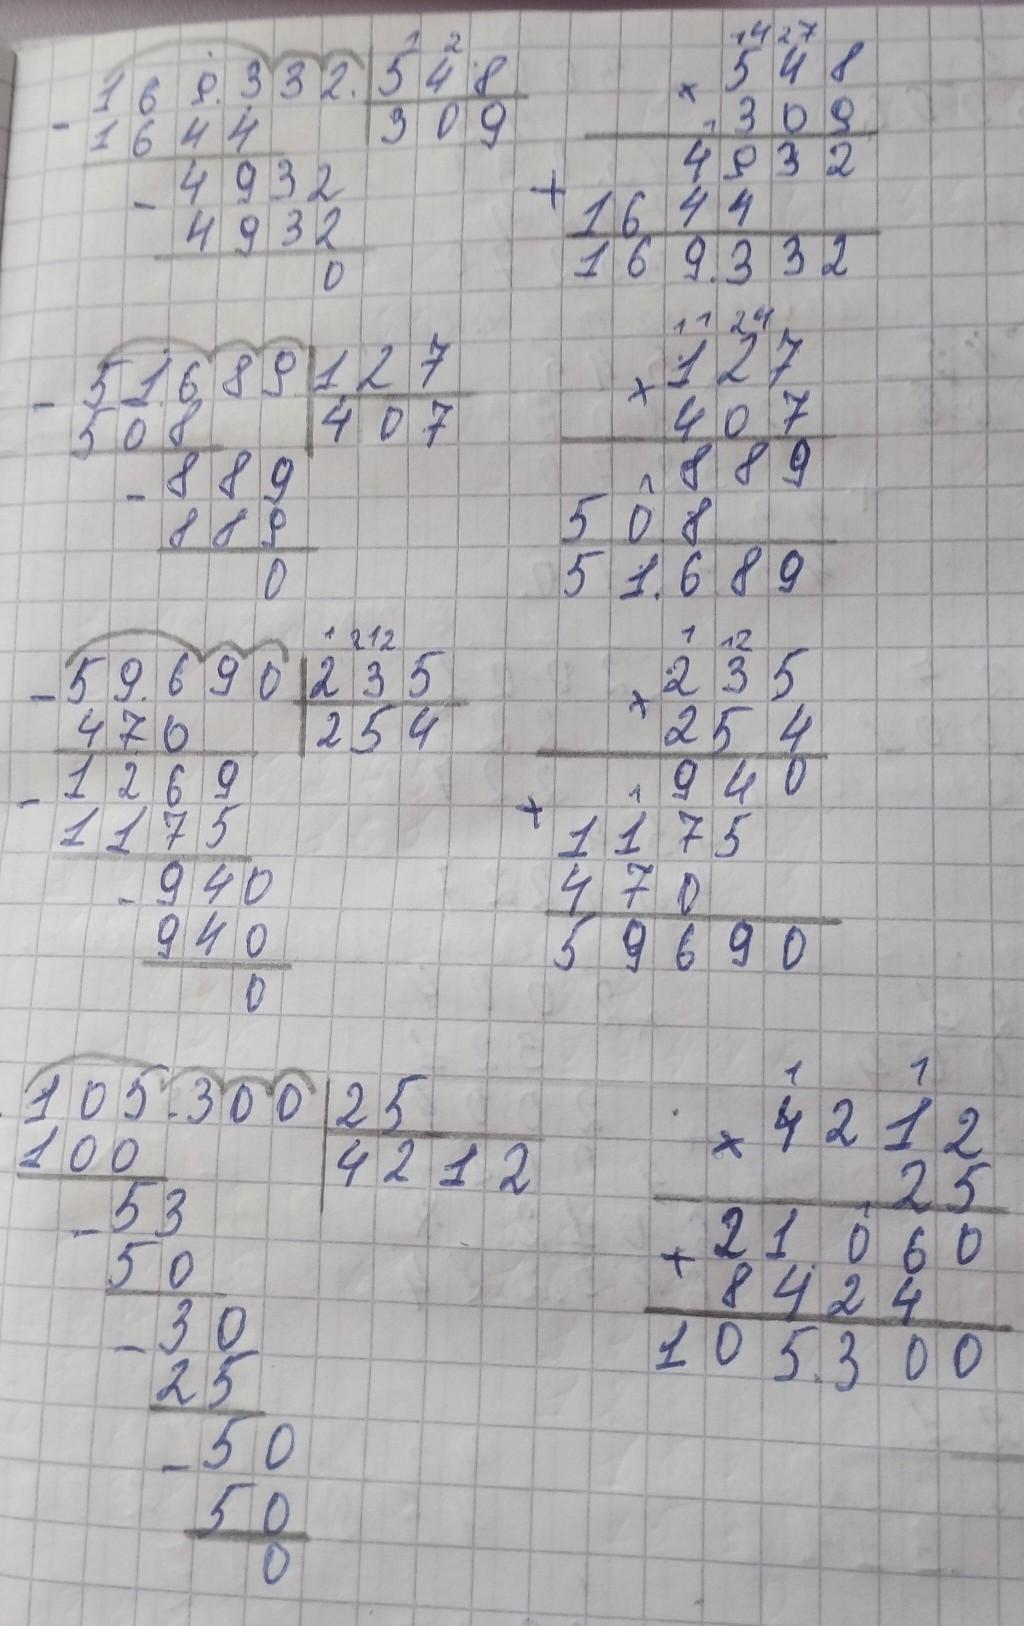 1 2
169.332. 548
- 1644 309
- 4932
4932
0
14 27
548
× 309
4932
+ 1644
169.332
- 51.689 127
508 407
- 889
889
0
11 24
127
× 407
1
889
508
51.689
1 212
- 59.690 235
470 254
- 1269
1175
- 940
940
0
1 12
235
× 254
940
+ 1
1175
470
59690
105.300 25
100 4212
- 53
50
- 30
25
- 50
50
0
1 1
4212
× 25
1
+ 21060
8424
105.300